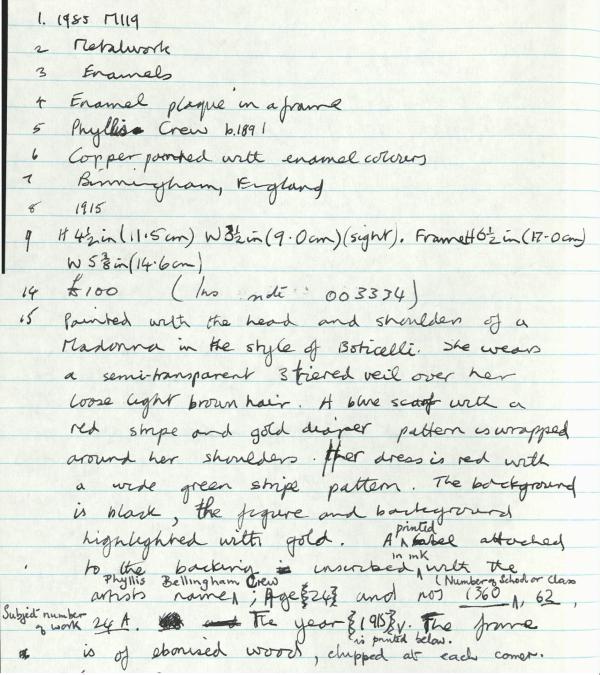 1. 1985 M119
2 Metalwork
3 Enamels
4 Enamel plaque in a frame
5 Phyllis Crew b.1891
6 Copper painted with enamel colours
7 Birmingham, England
8 1915
9 H 4½in (11.5cm) W 3½in (9.0cm) (sight). Frame H 6½in (17.0cm)
W 5¾in (14.6cm)
14 £100 (Ins note 003334)
15 Painted with the head and shoulders of a
Madonna in the style of Boticelli. She wears
a semi-transparent 3 tiered veil over her
loose light brown hair. A blue scarf with a
red stripe and gold diaper pattern is wrapped
around her shoulders. Her dress is red with
a wide green stripe pattern. The background
is black, the figure and background
highlighted with gold. A printed label attached
to the backing inscribed in ink with the
artists name Phyllis Bellingham Crew; Age {24} and nos 1360 (Number of School or Class, 62,
Subject number of work 24 A. The year {1915} is printed below. The frame
is of ebonised wood, chipped at each corner.